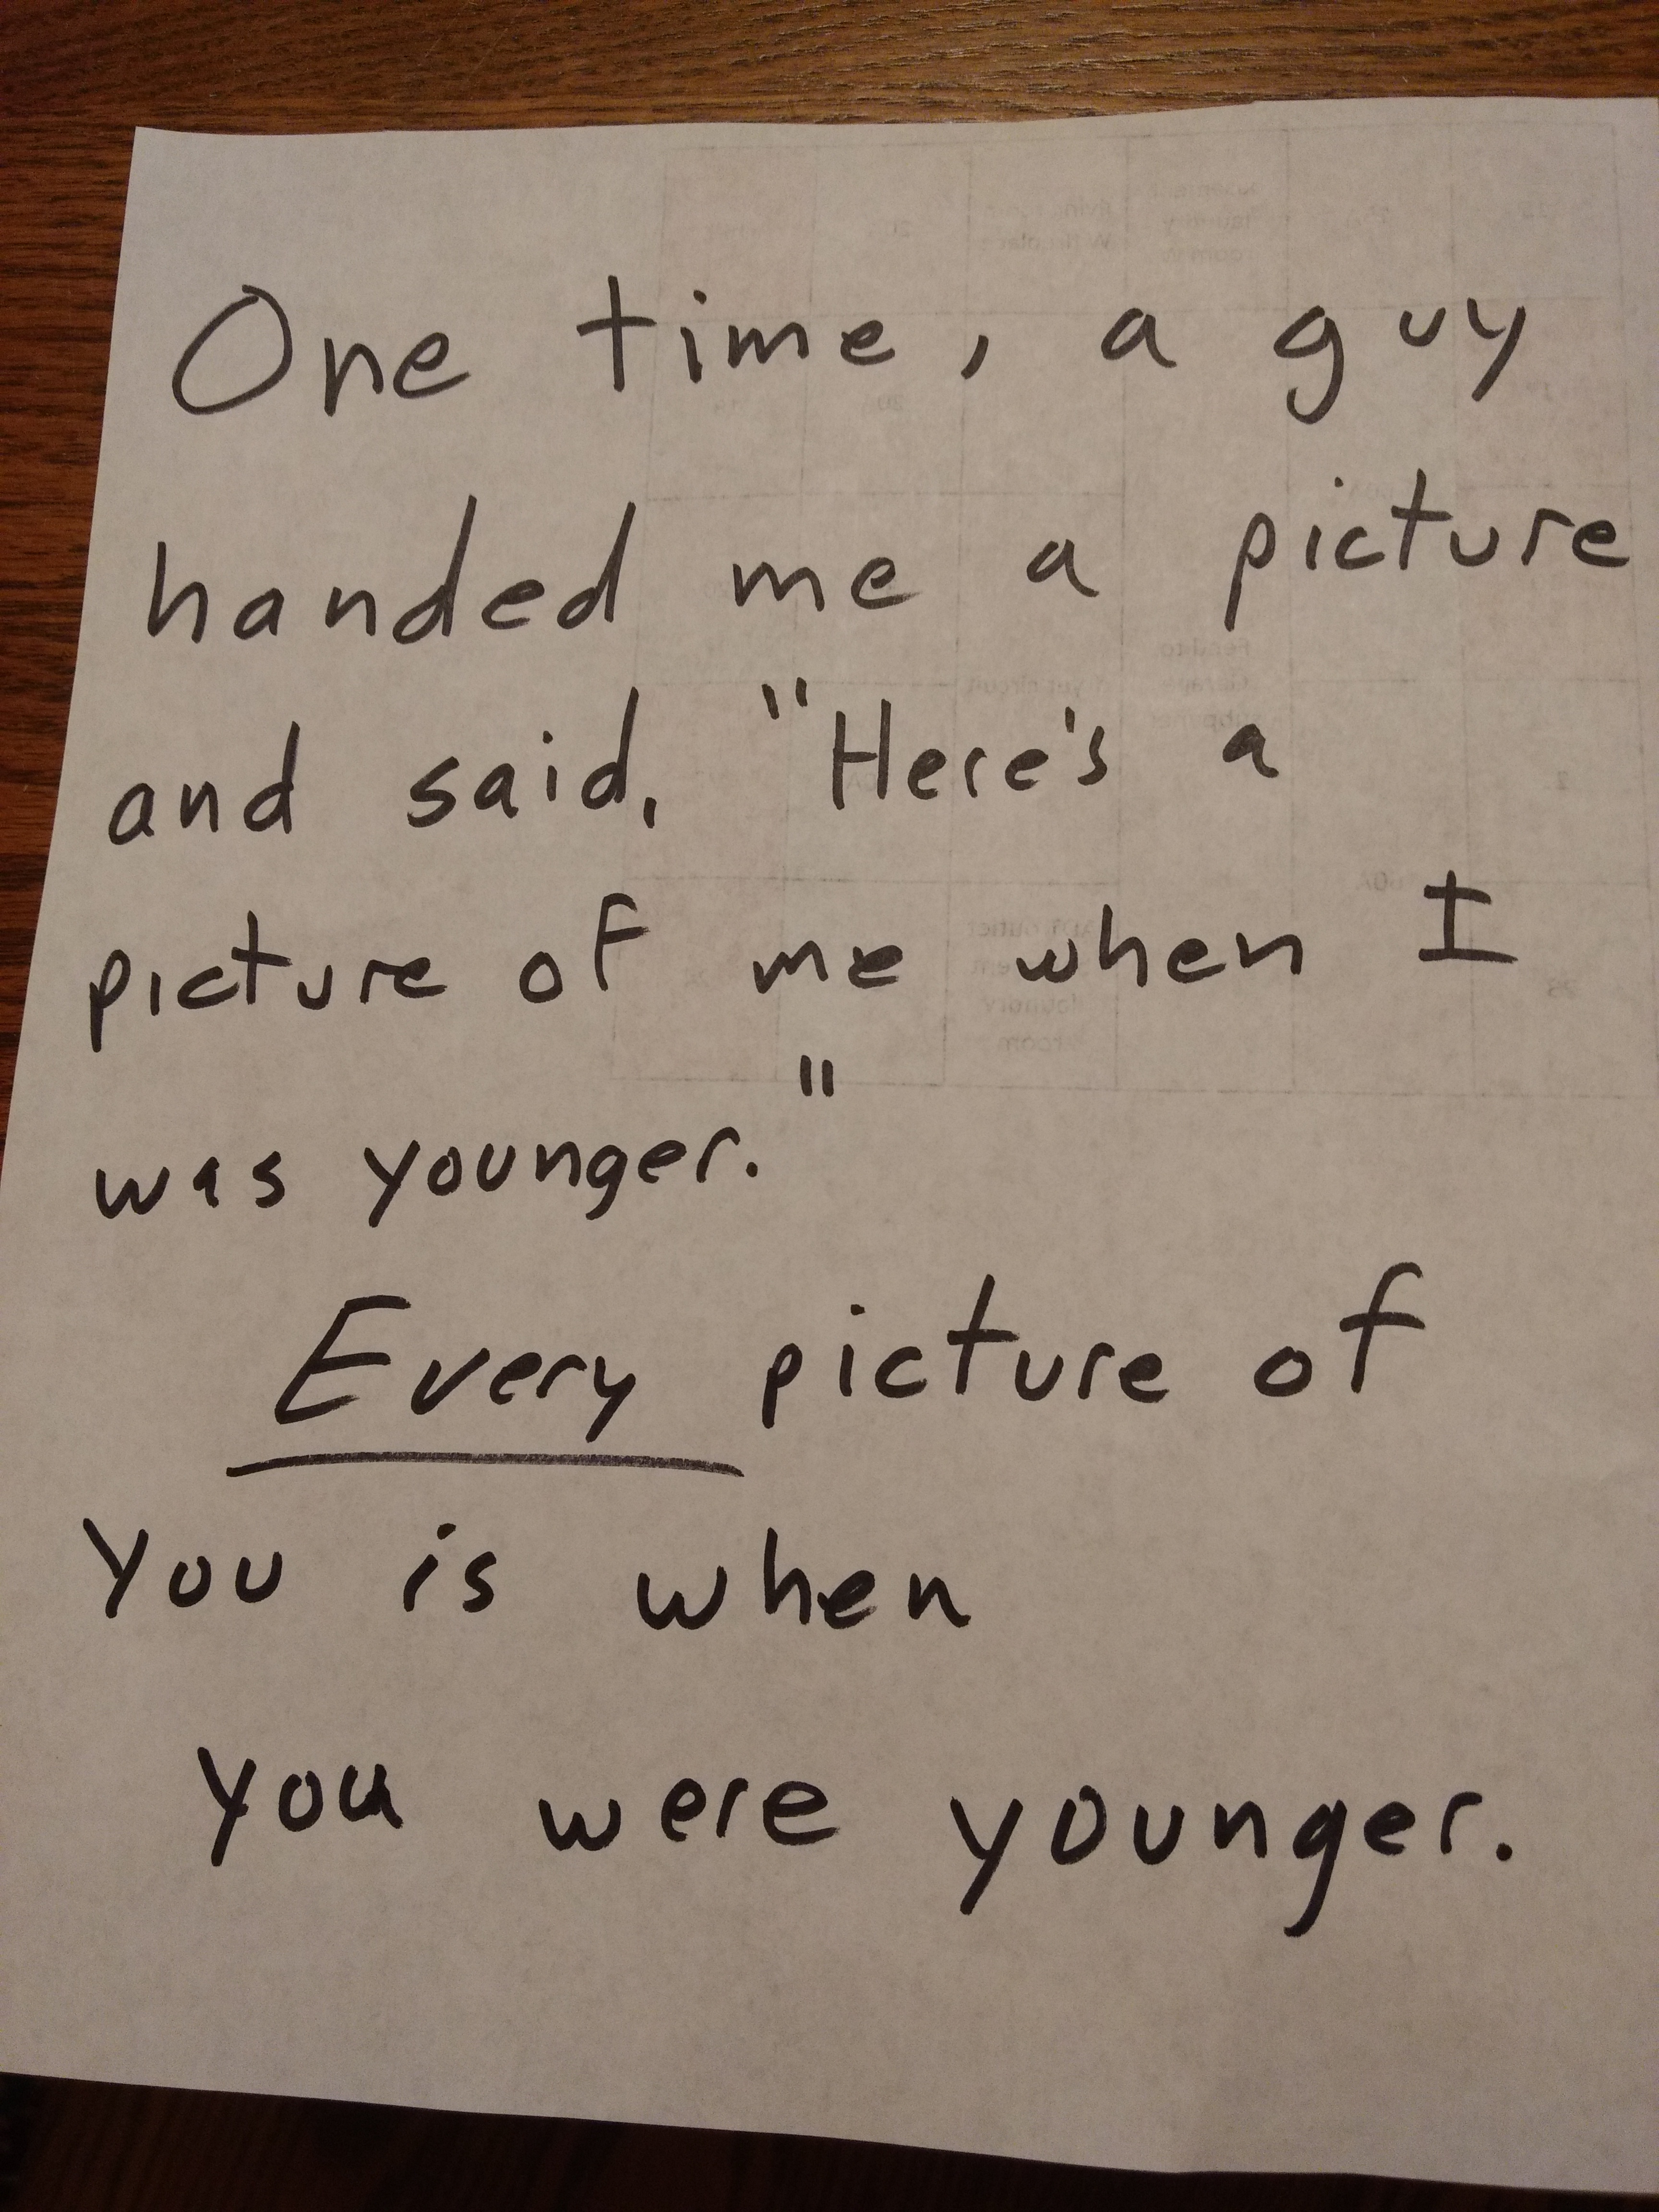 One time, a guy
handed me a picture
and said, "Here's a
picture of me when I
was younger."
Every picture of
you is when
you were younger.